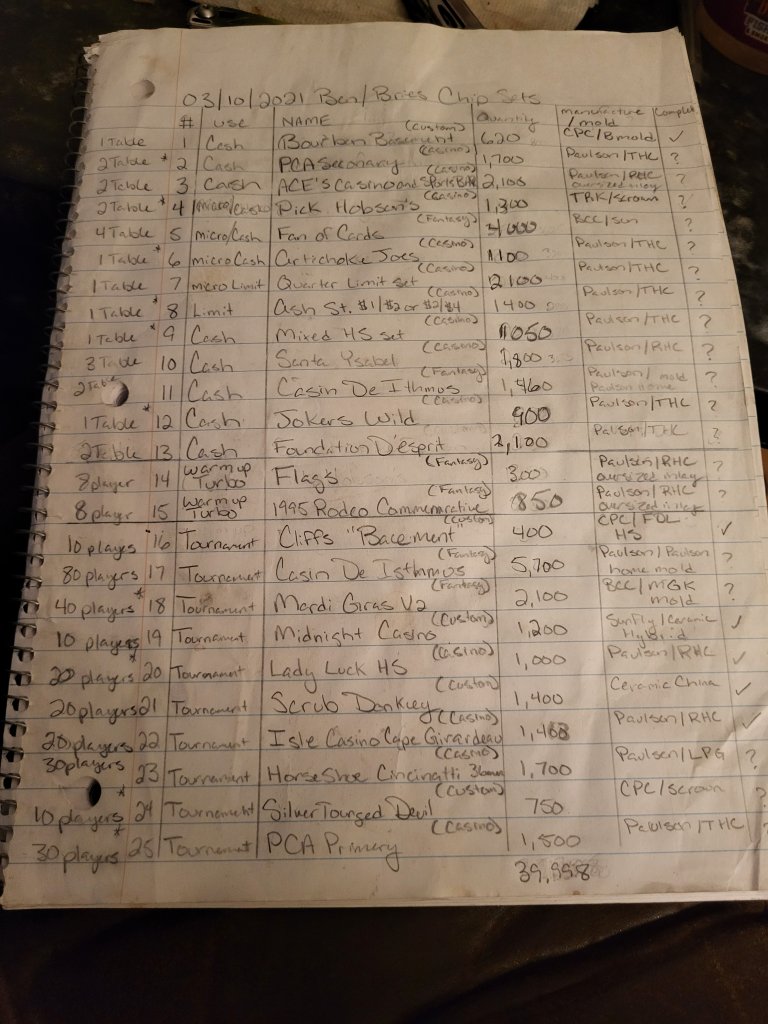 03/10/2021 Ben/Bries Chip Sets
# use NAME Quantity manufacture/mold Complet
1 Table 1 Cash Bourbon Basement (custom) 620 CPC/Bmold ✓
2 Table * 2 Cash PCA Secondary (Casino) 1,700 Paulson/THC ?
2 Table 3 Cash ACE's Casino and Sports Bar (Casino) 2,100 Paulson/RHC oversized inlay ?
2 Table * 4 micro/Cash Pick Hobson's (Casino) 1,300 TRK/scrown ?
4 Table 5 micro/Cash Fan of Cards (Fantasy) 000 BCC/sun ?
1 Table * 6 micro Cash Artichoke Joes (Casino) 1100 Paulson/THC ?
1 Table 7 micro Limit Quarter Limit Set (Casino) 2100 Paulson/THC ?
1 Table * 8 Limit Ash St. $1/$2 or $2/$4 (Casino) 1400 Paulson/THC ?
1 Table * 9 Cash Mixed HS set (Casino) 1050 Paulson/THC ?
3 Table 10 Cash Santa Ysabel (Casino) 1,800 Paulson/RHC ?
2 Table 11 Cash Casin De Ithmus (Fantasy) 1,460 Paulson/ mold Paulson home ?
1 Table * 12 Cash Jokers Wild (Casino) 900 Paulson/THC ?
2 Table 13 Cash Foundation D'esprit 2,100 Palson/THC ?
8 player 14 warm up Turbo Flags (Fantasy) 300 Paulson/RHC oversized inlay ?
8 player 15 warm up Turbo 1995 Rodeo Commemorative (Fantasy) 850 Paulson/RHC oversized inlay ?
10 players * 16 Tournament Cliffs "Bacement" (custom) 400 CPC/FDL HS ✓
80 players 17 Tournament Casin De Isthmus (Fantasy) 5,700 Paulson/Paulson home mold ?
40 players * 18 Tournament Mardi Gras V2 (Fantasy) 2,100 BCC/MGK mold ?
10 players 19 Tournament Midnight Casino (Custom) 1,200 Sunfly/Ceramic Hybrid ✓
20 players * 20 Tournament Lady Luck HS (Casino) 1,000 Paulson/RHC ✓
20 players 21 Tournament Scrub Donkey (Custom) 1,400 Ceramic China ✓
20 players 22 Tournament Isle Casino Cape Girardeau (Casino) 1,468 Paulson/RHC ✓
30 players 23 Tournament HorseShoe Cincinatti (Casino) 1,700 Paulson/LPG ?
10 players * 24 Tournament Silver Tounged Devil (Custom) 750 CPC/Scrown ?
30 players * 25 Tournament PCA Primary (Casino) 1,500 Paulson/THC ?
39,998